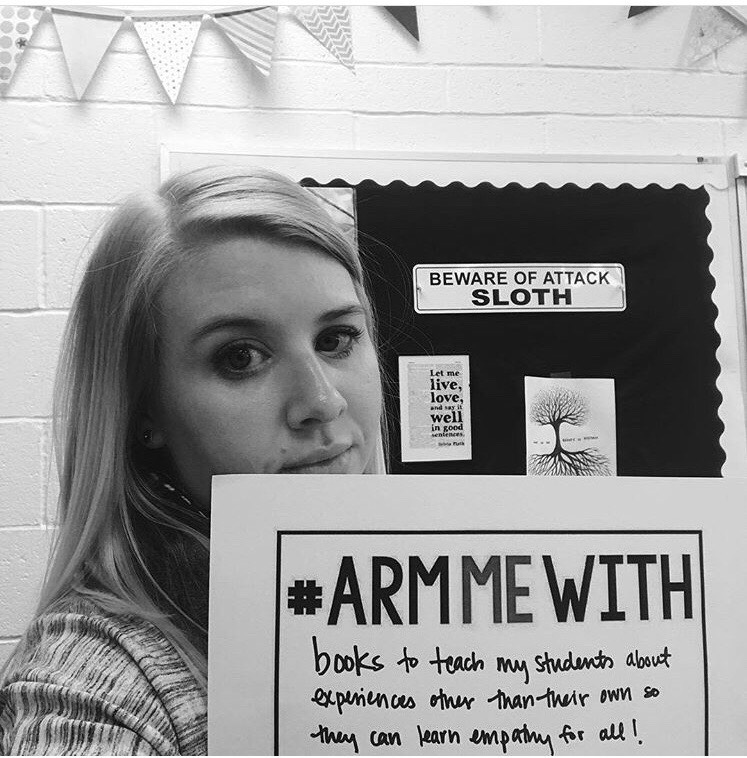 BEWARE OF ATTACK
SLOTH
Let me
live,
love,
and say it
well
in good
sentences
Sylvia Plath
#ARMMEWITH
books to teach my students about
experiences other than their own so
they can learn empathy for all!